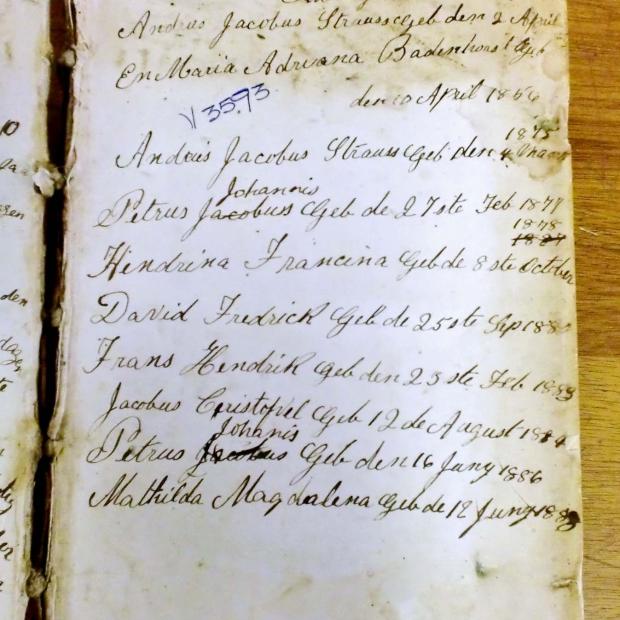 Andries Jacobus Strauss Geb den 2 April
En Maria Adriana Badenhorst Geb
den 10 April 1856
V 3593
1875
Andries Jacobus Strauss Geb den 4
Johannis
Petrus Jacobuss Geb de 27ste Feb 1877
1878
Hindrina Francina Geb de 8 ste October
David Fredrick Geb de 25ste Sep
Frans Hendrik Geb den 25ste Feb 1883
Jacobus Cristofiel Geb 12 de August 1884
Johanis
Petrus Jacobus Geb den 16 Juny 1886
Mathilda Magdalena Geb de 12 Juny
10
den